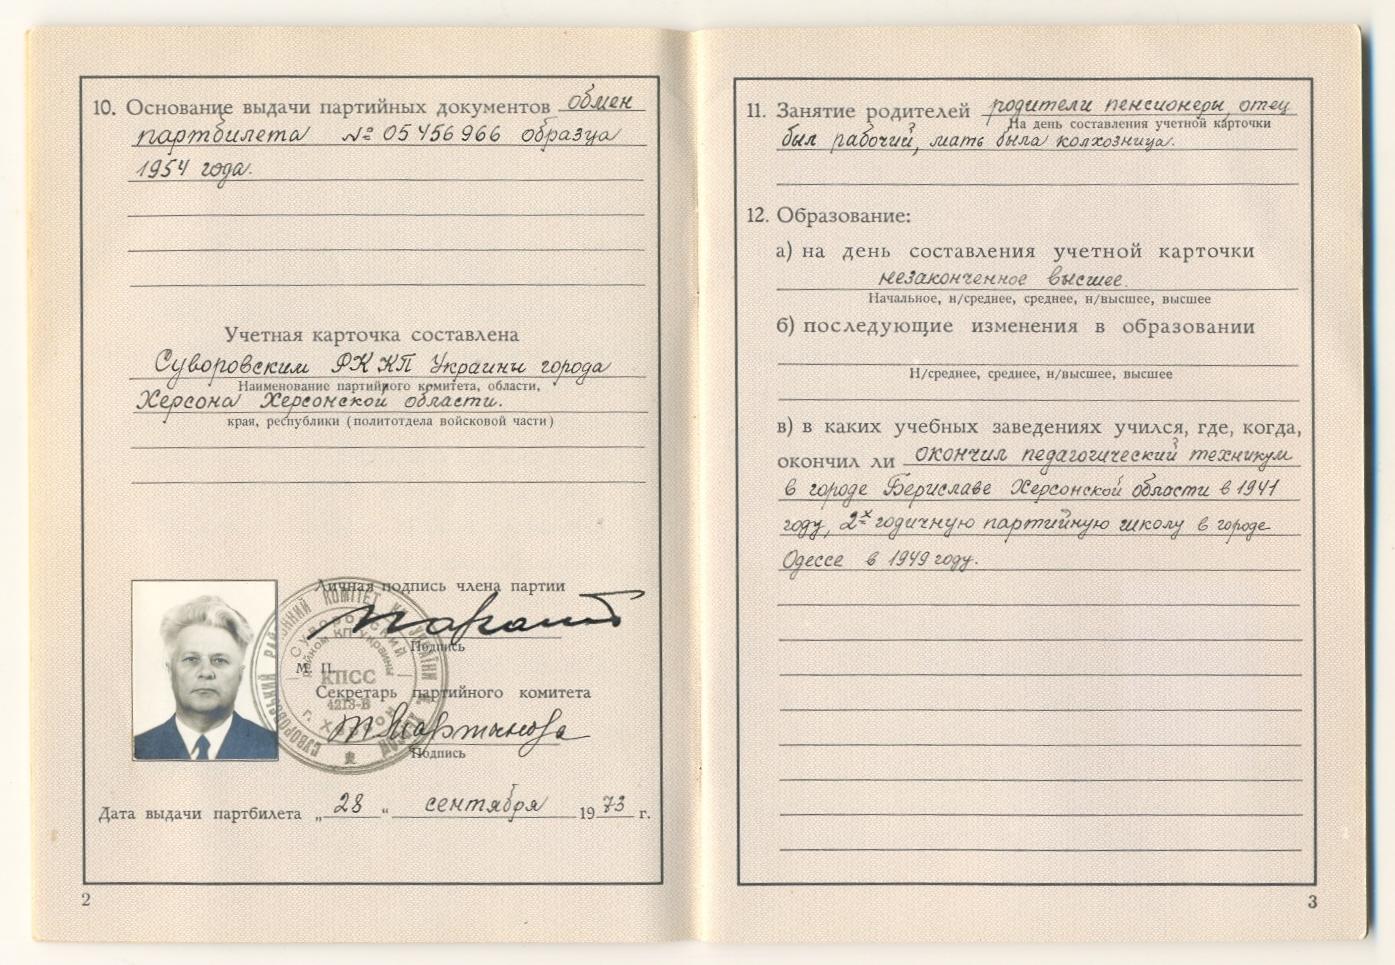 10. Основание выдачи партийных документов обмен
партбилета № 05456966 образца
1954 года.
Учетная карточка составлена
Суворовским РК КП Украины города
Наименование партийного комитета, области,
Херсона Херсонской области.
края, республики (политотдела войсковой части)
Личная подпись члена партии
Подпись
М. П.
Секретарь партийного комитета
Подпись
СУВОРОВСЬКИЙ РАЙОННИЙ КОМІТЕТ КП УКРАЇНИ
СУВОРОВСКИЙ
райком КП Украины
КПСС
4213-В
г. Херсон
Дата выдачи партбилета „28“ сентября 1973 г.
2
11. Занятие родителей родители пенсионеры, отец
На день составления учетной карточки
был рабочий, мать была колхозница.
12. Образование:
а) на день составления учетной карточки
незаконченное высшее.
Начальное, н/среднее, среднее, н/высшее, высшее
б) последующие изменения в образовании
Н/среднее, среднее, н/высшее, высшее
в) в каких учебных заведениях учился, где, когда,
окончил ли окончил педагогический техникум
в городе Бериславе Херсонской области в 1941
году, 2х годичную партийную школу в городе
Одессе в 1949 году.
3